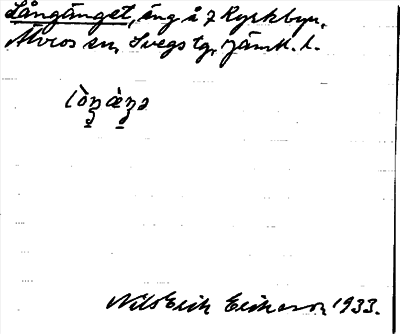 Långänget, äng å 7 Kyrkbyn,
Älvros sn, Svegs tg, Jämtl. l.
Nils Erik Eriksson 1933.